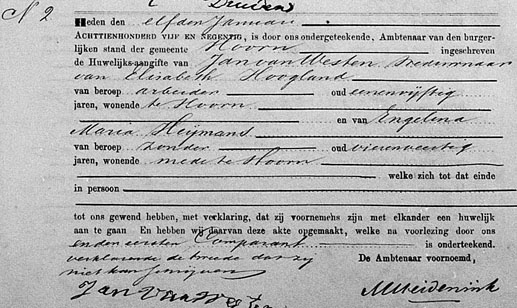 N 2
Heden den elfden Januari
ACHTTIENHONDERD VIJF EN NEGENTIG, is door ons ondergeteekende, Ambtenaar van den burger-
lijken stand der gemeente Hoorn ingeschreven
de Huwelijks-aangifte van Jan van Westen weduwnaar
van Elisabeth Hoogland
van beroep arbeider oud eenenvijftig
jaren, wonende te Hoorn
en van Engelina
Maria Heijmans
van beroep zonder oud vierenveertig
jaren, wonende mede te Hoorn
welke zich tot dat einde
in persoon
tot ons gewend hebben, met verklaring, dat zij voornemens zijn met elkander een huwelijk
aan te gaan En hebben wij daarvan deze akte opgemaakt, welke na voorlezing door ons
en den eersten Comparant is onderteekend.
verklarende de tweede dat zij De Ambtenaar voornoemd,
niet kan
Jan van